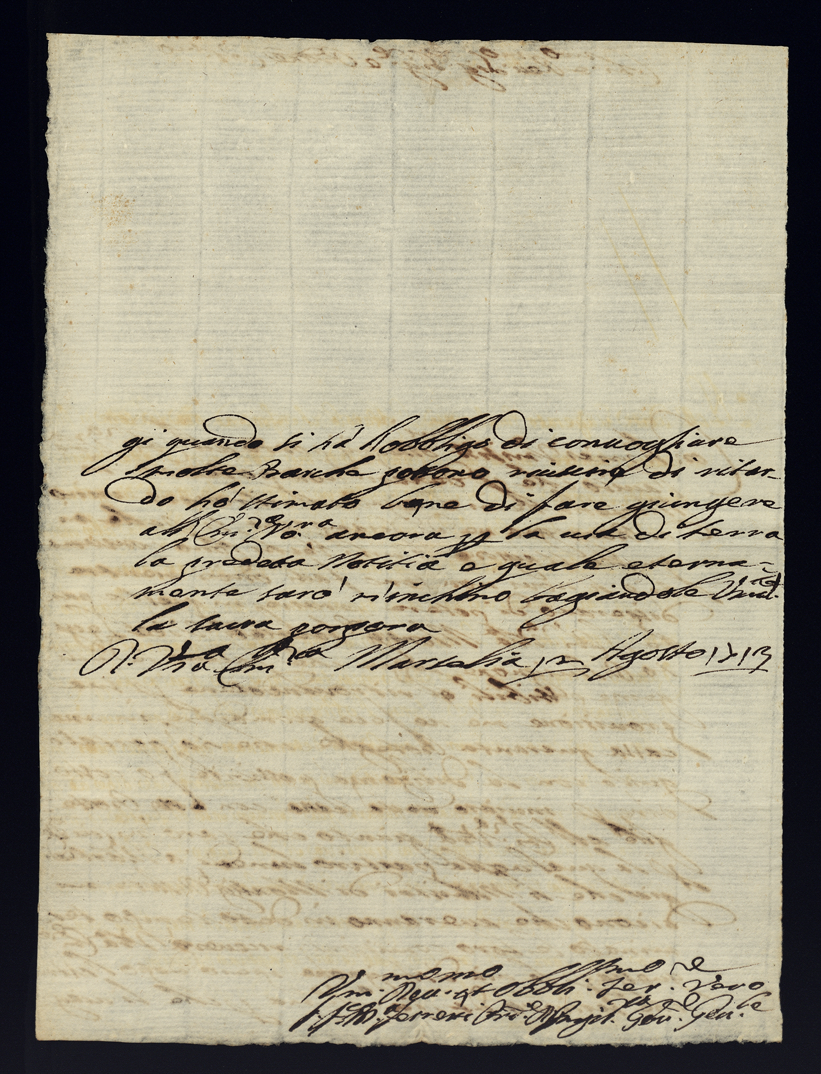 gi quando si hà l'obbligo di convogliare
molte Barche possono riuscire di ritar-
do hò stimato bene di fare giungere
all' Em.za V.ra ancora per la via di terra
la predetta Notitia e quale eterna-
mente sarò m'inchino bagiandole
la sacra porpora
D. V.ra Em.za Marselia 12 Agosto 1713
Vm.mo Obbl.mo Ser. Vero